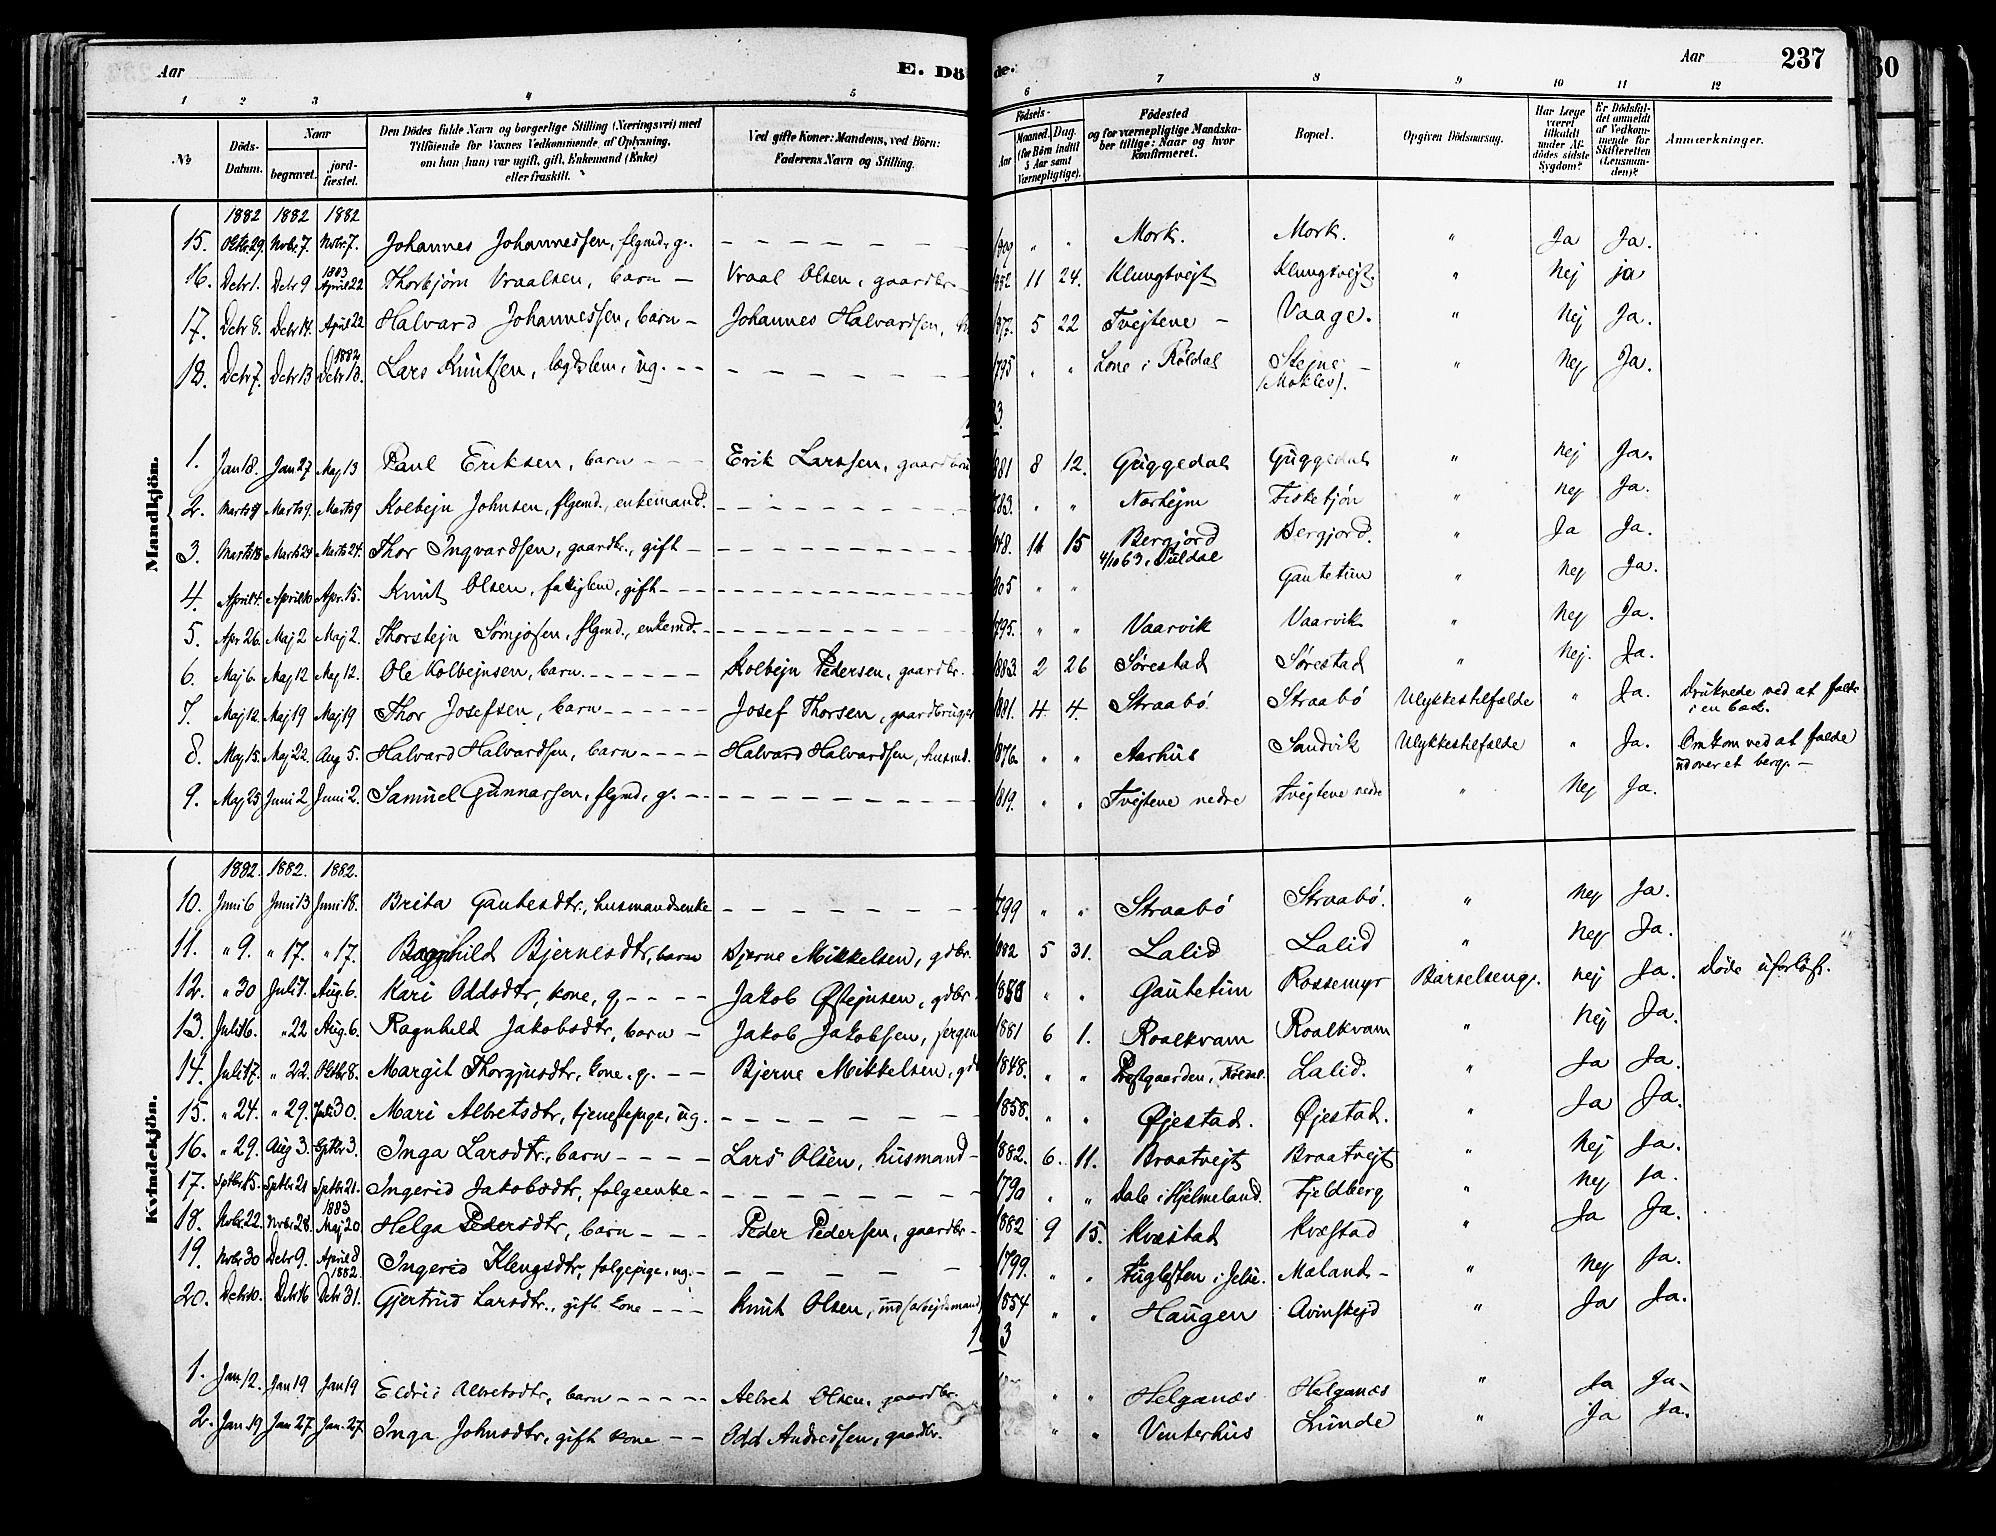 Aar E. Dö de. Aar 237
1 2 3 4 5 6 7 8 9 10 11 12
No
Döds-Datum.
Naar
begravet.
jord-fæstet.
Den Dödes fulde Navn og borgerlige Stilling (Næringsvei) med
Tilföiende for Voxnes Vedkommende af Oplysning,
om han (hun) var ugift, gift, Enkemand (Enke)
eller fraskilt.
Ved gifte Koner: Mandens, ved Börn:
Faderens Navn og Stilling.
Födsels-
Aar
Maaned. Dag.
(for Börn indtil
5 Aar samt
Værnepligtige).
Födested
og for værnepligtige Mandskaber tillige: Naar og hvor
konfirmeret.
Bopæl.
Opgiven Dödsaarsag.
Har Læge
været
tilkaldt
under Afdödes sidste
Sygdom?
Er Dödsfaldet anmeldt
af Vedkommende for
Skifteretten
(Lensmanden)?
Anmærkninger.
Mandkjön.
1882 1882 1882
15. Oktr.29. Novbr.7. Novbr.7. Johannes Johannessen, flgmd, g. 1809 " " Mork. Mork. " Ja Ja.
16. Debr1. Debr 9 1883 April 22 Thorbjørn Vraalsen, barn Vraal Olsen, gaardbr. 11 24. Klungtvejt Klungtvejt. " Nej ja
17. Debr 8. Debr 14. April 22 Halvard Johannessen, barn Johannes Halvardsen, 1877. 5 22 Tvejtene Vaage. " Nej Ja.
18. Debr 7. Debr 13 1882 Debr 13. Lars Knutsen, lægdslem, ug. 1795 " " Lone i Røldal Stejne (Moklev). " Nej Ja.
1883
1. Jan 18. Jan 27 Maj 13 Paul Eriksen, barn Erik Larssen, gaardbru 1881 8 12. Guggedal Guggedal " nej Ja.
2. Marts Marts 9. Marts 9 Kolbejn Johnsen, flgemd., enkemand. 1783. " " Narhejm Fisketjön " nej Ja.
3. Marts 18. Marts 24 Marts 24. Thor Ingvardsen, gaardbr., gift 1848. 11 15 Bergjord 4/10 63, Suldal Bergjord. " Ja Ja.
4. April 4. April 10 Apr. 15. Knut Olsen, fattiglem, gift 1805 " " Gautetun " Nej Ja.
5. Apr 26. Maj 2 Maj 2. Thorstejn Sømjosen, flgmd., enkemd. 1795. " " Vaarvik Vaarvik " Nej Ja.
6. Maj 6. Maj 12 Maj 12. Ole Kolbejnsen, barn. Kolbejn Pedersen, gaardbr. 1883 2 26 Sørestad Sørestad " Nej. Ja.
7. Maj 12. Maj 19 Maj 19 Thor Josefsen, barn Josef Thorsen, gaardbruger 1881. 4 4. Straabö Straabö Ulykkestilfælde " Ja. Druknede ved at falde i en bæk.
8. Maj 15. Maj 22. Aug 5. Halvard Halvardsen, barn Halvard Halvardsen, husmd. 1876. " " Aarhus Sandvik Ulykkestilfælde " Ja. Omkom ved at falde udover et berg.
9. Maj 25 Juni 2 Juni 2. Samuel Gunnarsen, flgmd, g. 1819. " " Tvejtene nedre Tvejtene nedre " Nej Ja.
Kvindekjön.
1882. 1882. 1882.
10. Juni 6 Juni 13 Juni 18. Brita Gautesdtr, husmandsenke 1799 " " Straabö Straabö. " Nej Ja.
11. " 9. " 17. " 17. Ragnhild Bjernesdtr, barn Bjerne Mikkelsen, gdbr. 1882 5 31. Lalid Lalid " Nej Ja.
12. " 30 Juli 7. Aug. 6. Kari Oddsdtr, kone, g Jakob Østejnsen, gdbr " " Gautetun Rossemyr Barselseng. nej Ja. Døde uforløst.
13. Juli 16. " 22 Aug. 6. Ragnhild Jakobsdtr, barn Jakob Jakobsen, 1881 6 1. Roalkvam Roalkvam " Nej Ja.
14. Juli 17. " 22. Oktbr 8. Margit Thorgjusdtr, kone, g. Bjerne Mikkelsen, gdb 1848. " " Præstgaarden, Røldal. Lalid. " Ja Ja.
15. " 24. " 29. Juli 30. Mari Albretsdtr, tjenestepige, ug. 1858. " " Øjestad. Øjestad. " Ja Ja.
16. " 29. Aug 3. Sptbr 3. Inga Larsdtr., barn Lars Olsen, husmand 1882. 6. 11. Braatvejt Braatvejt " Nej Ja.
17. Sptbr 15. Sptbr 21 Sptbr 21. Ingerid Jakobsdtr, folgeenke 1790 " " Dale i Hjelmeland. Fjeldberg " Nej Ja.
18. Novbr. 22. Novbr 28. 1883 Maj 20 Helga Pedersdtr, barn Peder Pedersen, gaardbr 1882 9 15. Kvæstad Kvæstad " Ja Ja.
19. Novbr 30 Debr 9. April 8 Ingerid Klengsdtr, folgepige, ug. 1799. " " Fuglesten i Jelse. Maland " Nej Ja.
20. Debr 10. Debr 16 1882. Debr 31. Gjertrud Larsdtr., gift kone Knut Olsen, ind (arbejdsmand) 1854 " " Haugen Avinskejd " Ja Ja.
1883
1. Jan 12. Jan 19 Jan 19 Eldrii Albretsdtr, barn Albret Olsen, gaardbr. " " Helganæs Helganæs " Ja Ja
2. Jan 19 Jan 27. Jan. 27. Inga Johnsdtr, gift kone Odd Andressen, gaardbr. " " Vinterhus Lunde " Ja Ja.